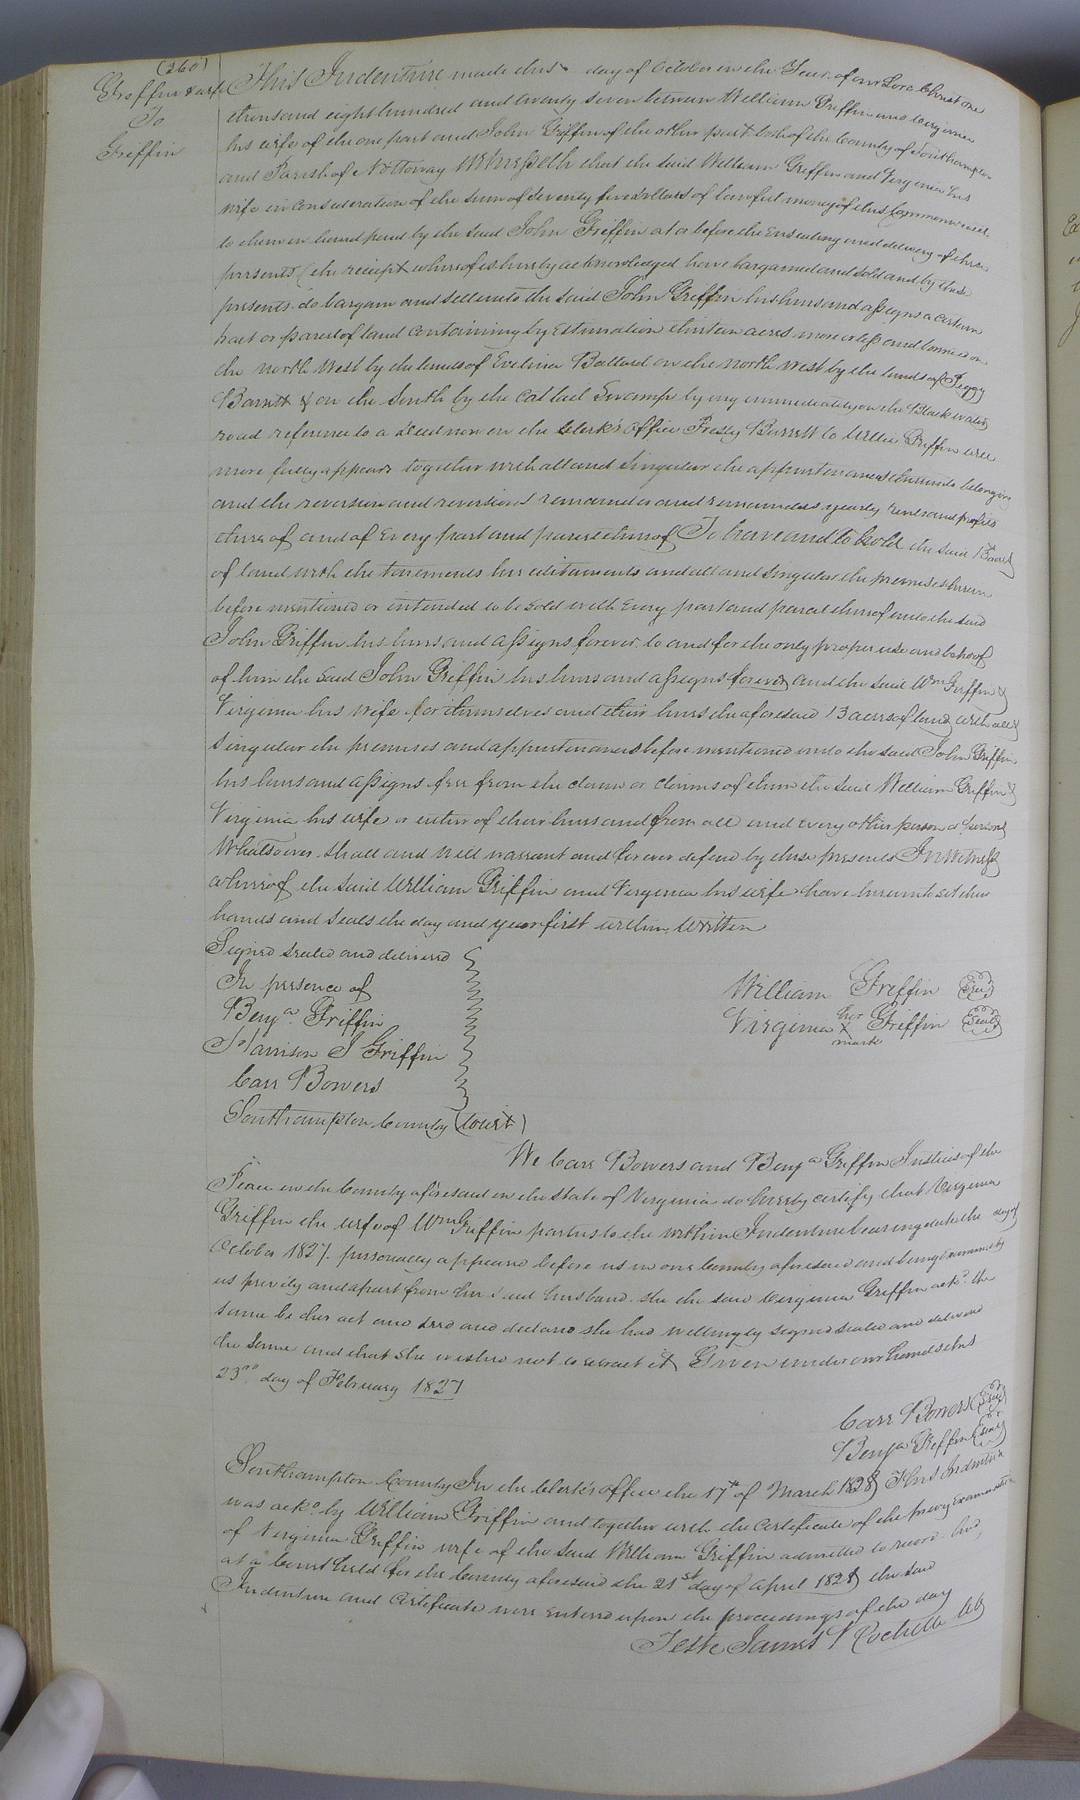 (260)
Griffin & wife
To
Griffin
This Indenture made this day of October in the Year of our Lord Christ one
thousand eight hundred and twenty seven between William Griffin and Virginia
his wife of the one part and John Griffin of the other part both of the County of Southampton
and Parish of Nottoway Witnesseth that the said William Griffin and Virginia his
wife in consideration of the sum of Seventy five dollars of lawful money of this Commonwealth
to them in hand paid by the said John Griffin at or before the Ensealing and delivery of these
presents (the reciept whereof is hereby acknowledged have bargained and sold and by these
presents do bargain and sell unto the said John Griffin his heirs and assigns a certain
tract or parcel of land containing by Estimation thirteen acres more or less and bounded on
the north West by the lands of Evelina Ballard on the north west by the lands of Peggy
Barrett & on the South by the Cat tail Swamp by immediately on the Black water
road reference to a Deed now in the Clerk's office Presly Barrett to Willie Griffin will
more fully appear together with all and Singular the appurtenances thereunto belonging
and the reversion and reversions remainder and remainders yearly rents and profits
thereof and of Every part and parcel thereof To have and to hold the said 13 acres
of land with the tenements hereditaments and all and Singular the premises herein
before mentioned or intended to be Sold with Every part and parcel thereof unto the said
John Griffin his heirs and assigns forever to and for the only proper use and behoof
of him the said John Griffin his heirs and assigns forever and the said Wm Griffin &
Virginia his wife for themselves and their heirs the aforesaid 13 acres of land with all &
Singular the premises and appurtenances before mentioned unto the said John Griffin
his heirs and assigns free from the claim or claims of them the said William Griffin &
Virginia his wife or either of their heirs and from all and every other person or persons
Whatsoever shall and will warrant and forever defend by these presents In Witness
whereof the said William Griffin and Virginia his wife have hereunto set their
hands and seals the day and year first within Written
Signed sealed and delivered
In presence of
Benja. Griffin
Harrison J Griffin
Carr Bowers
William Griffin (Seal)
Virginia her X mark Griffin (Seal)
Southampton County (Court)
We Carr Bowers and Benja Griffin Justices of the
Peace in the County aforesaid in the State of Virginia do hereby certify that Virginia
Griffin the wife of Wm Griffin parties to the within Indenture bearing date the day of
October 1827. personally appeared before us in our County aforesaid and being examined by
us privily and apart from her said husband. she the said Virginia Griffin ackd. the
same be her act and deed and declared she had willingly signed sealed and delivered
the same and that she wished not to retract it Given under our hands this
23rd. day of February 1827
Carr Bowers (Seal)
Benja Griffin (Seal)
Southampton County In the Clerk's office the 17th of March 1828 This Indenture
was ackd. by William Griffin and together with the Certificate of the privy Examination
of Virginia Griffin wife of the said William Griffin admitted to record And,
at a Court held for the County aforesaid the 21st day of April 1828 the said
Indenture and Certificate were Entered upon the proceedings of the day
Teste James Rochelle